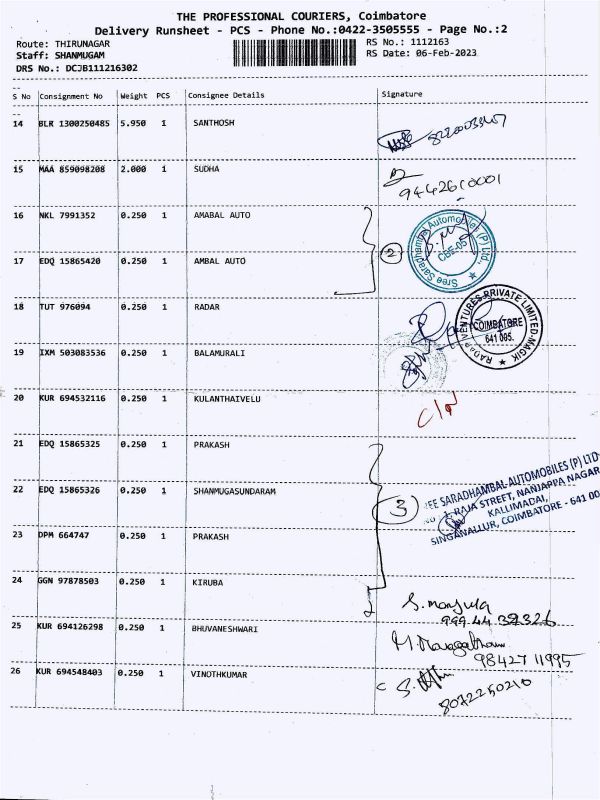 THE PROFESSIONAL COURIERS, Coimbatore
Delivery Runsheet - PCS - Phone No.:0422-3505555 - Page No.:2
Route: THIRUNAGAR RS No.: 1112163
Staff: SHANMUGAM RS Date: 06-Feb-2023
DRS No.: DCJB111216302
S No Consignment No Weight PCS Consignee Details Signature
14 BLR 1300250485 5.950 1 SANTHOSH
15 MAA 859098208 2.000 1 SUDHA
9442610001
16 NKL 7991352 0.250 1 AMABAL AUTO
Sree Saradhambal Automobiles (P) Ltd.,
CBE-05
2
17 EDQ 15865420 0.250 1 AMBAL AUTO
18 TUT 976094 0.250 1 RADAR
RADAR VENTURES PRIVATE LIMITED-MAGIK
COIMBATORE
641 005.
19 IXM 503083536 0.250 1 BALAMURALI
20 KUR 694532116 0.250 1 KULANTHAIVELU
21 EDQ 15865325 0.250 1 PRAKASH
22 EDQ 15865326 0.250 1 SHANMUGASUNDARAM
3
SREE SARADHAMBAL AUTOMOBILES (P) LTD
RAJA STREET, NANJAPPA NAGAR
KALLIMADAI,
SINGANALLUR, COIMBATORE - 641 00
23 DPM 664747 0.250 1 PRAKASH
24 GGN 97878503 0.250 1 KIRUBA
S. manjula
25 KUR 694126298 0.250 1 BHUVANESHWARI
9842711995
26 KUR 694548403 0.250 1 VINOTHKUMAR
8072250210